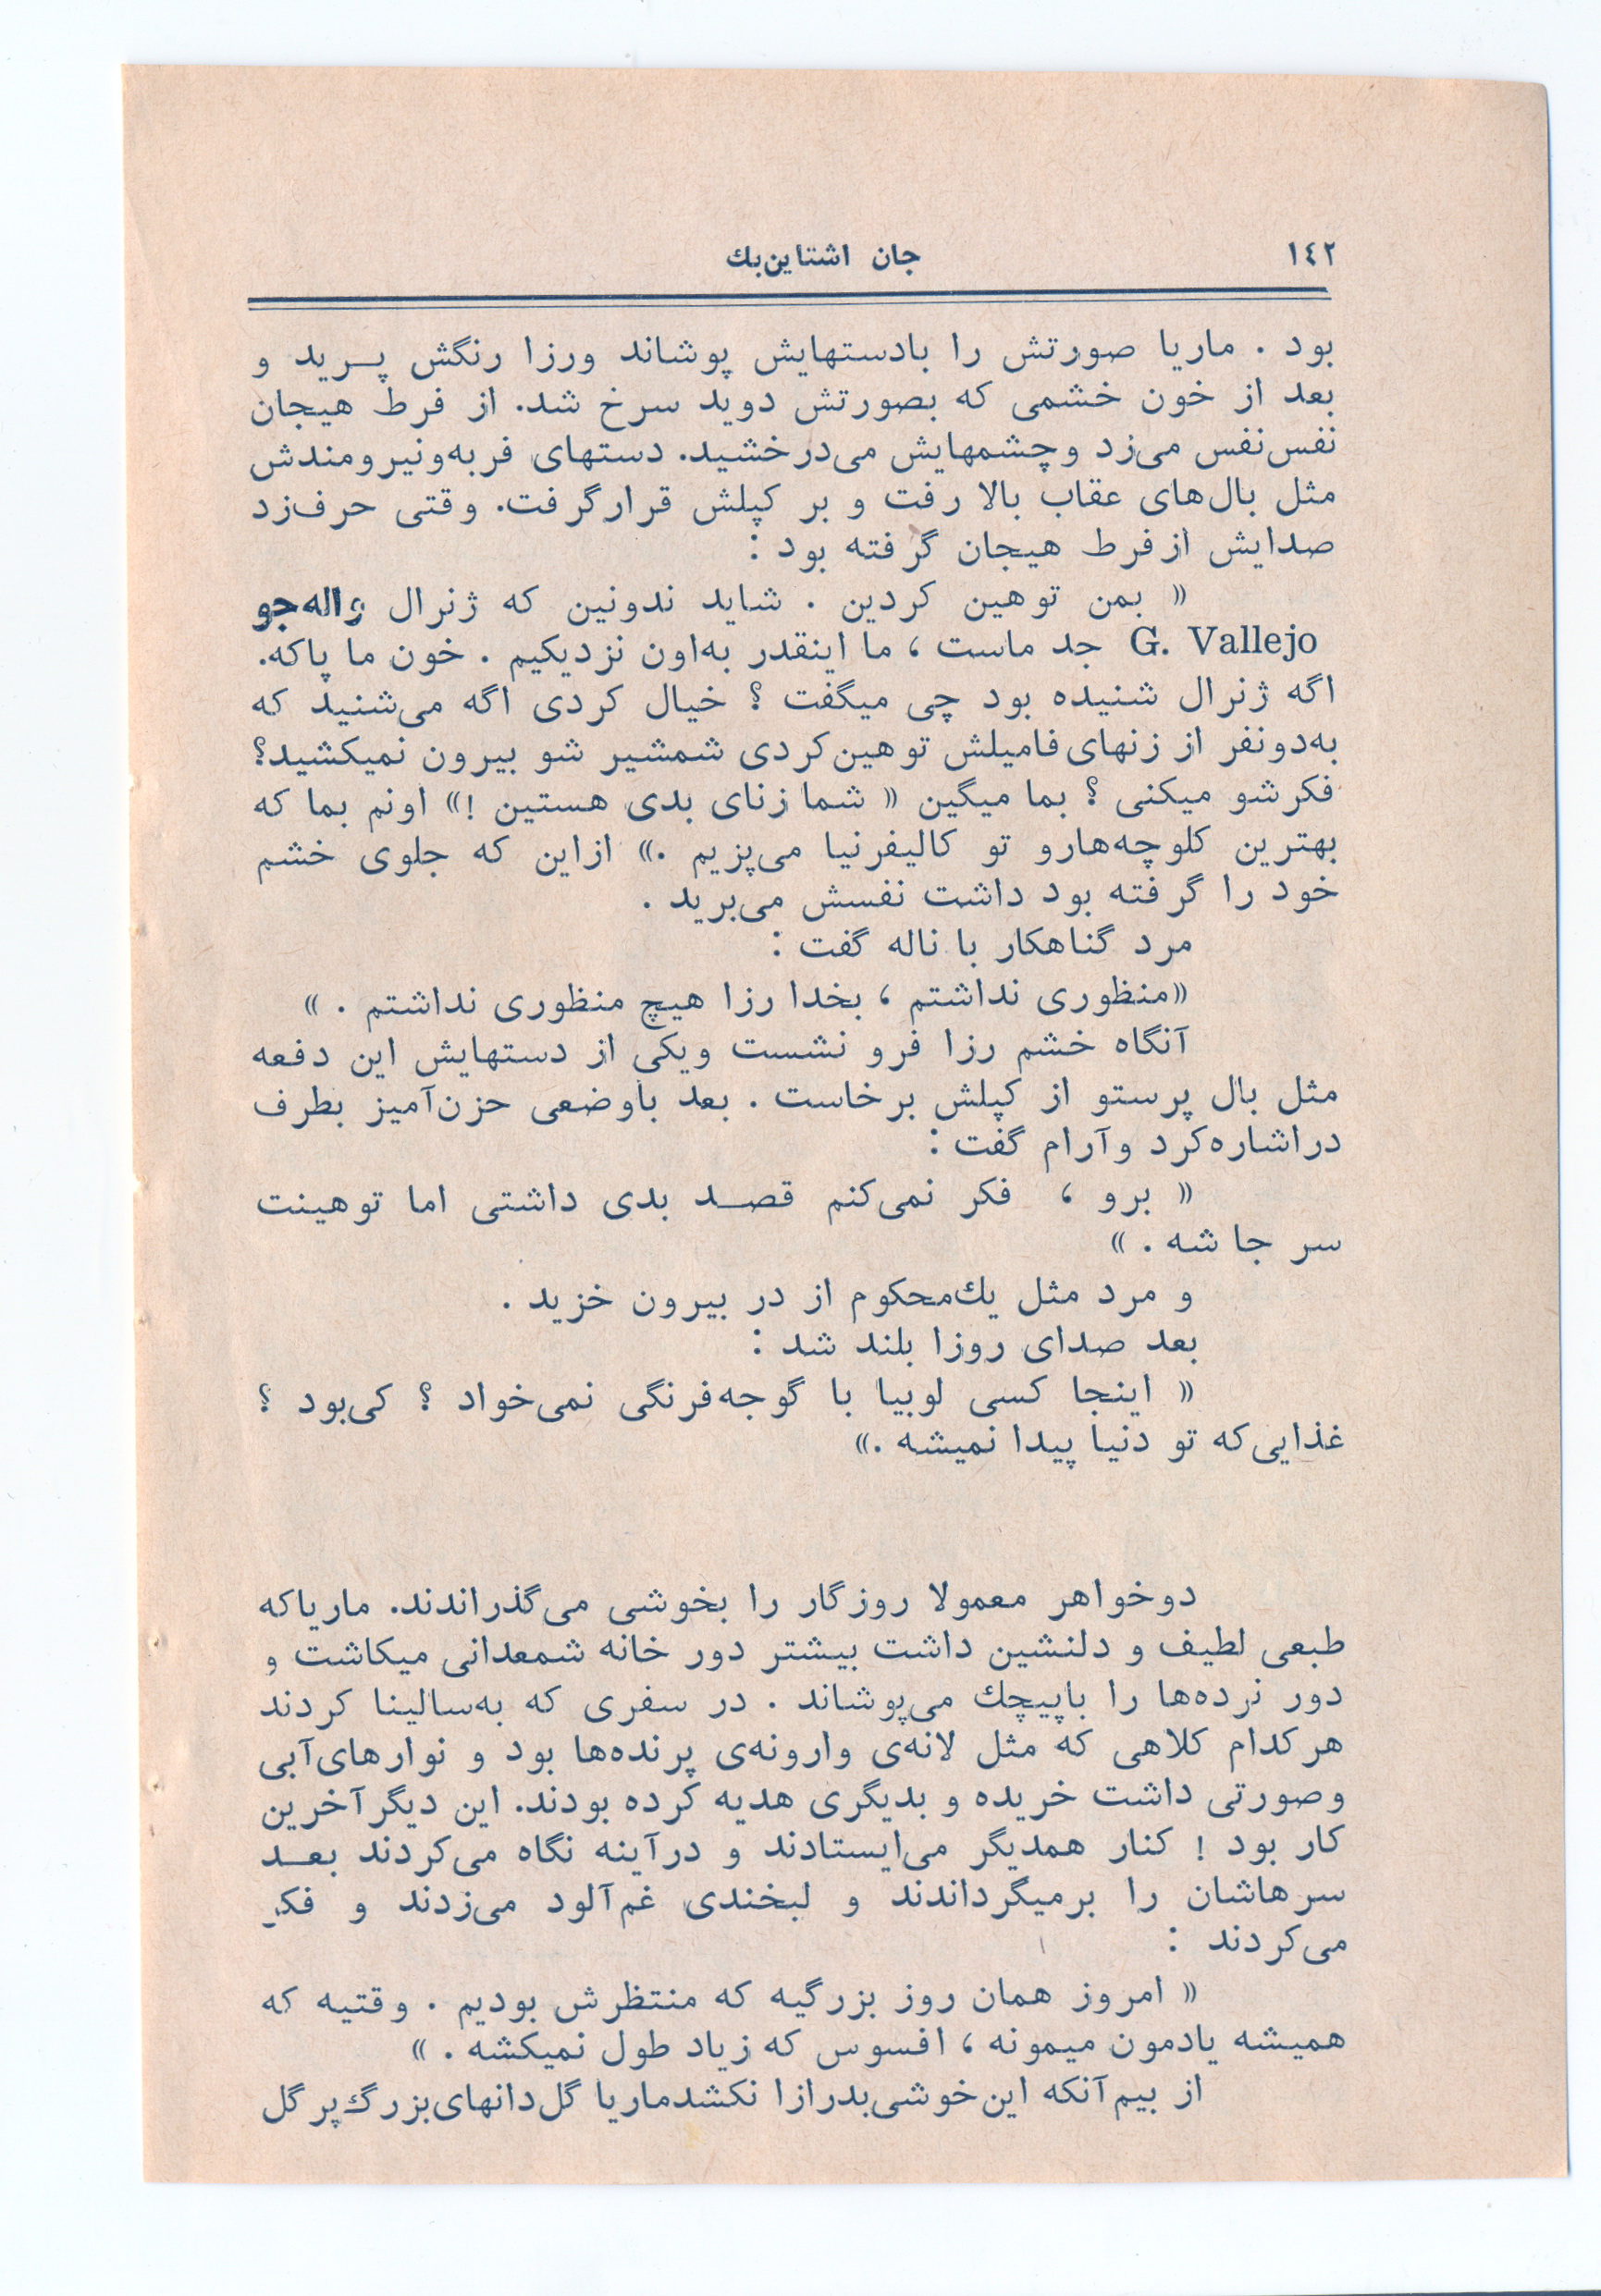 ۱٤۲ جان اشتاین‌بك
بود . ماریا صورتش را بادستهایش پوشاند ورزا رنگش پـرید و
بعد از خون خشمی که بصورتش دوید سرخ شد. از فرط هیجان
نفس‌نفس می‌زد وچشمهایش می‌درخشید. دستهای فربه‌ونیرومندش
مثل بال‌های عقاب بالا رفت و بر کپلش قرارگرفت. وقتی حرف‌زد
صدایش ازفرط هیجان گرفته بود :
« بمن توهین کردین . شاید ندونین که ژنرال واله‌جو
G. Vallejo جد ماست ، ما اینقدر به‌اون نزدیکیم . خون ما پاکه.
اگه ژنرال شنیده بود چی میگفت ؟ خیال کردی اگه می‌شنید که
به‌دونفر از زنهای‌فامیلش توهین‌کردی شمشیر شو بیرون نمیکشید؟
فکرشو میکنی ؟ بما میگین « شما زنای بدی هستین !» اونم بما که
بهترین کلوچه‌هارو تو کالیفرنیا می‌پزیم .» ازاین که جلوی خشم
خود را گرفته بود داشت نفسش می‌برید .
مرد گناهکار با ناله گفت :
«منظوری نداشتم ، بخدا رزا هیچ منظوری نداشتم . »
آنگاه خشم رزا فرو نشست ویکی از دستهایش این دفعه
مثل بال پرستو از کپلش برخاست . بعد باوضعی حزن‌آمیز بطرف
دراشاره‌کرد وآرام گفت :
« برو ، فکر نمی‌کنم قصـد بدی داشتی اما توهینت
سر جا شه . »
و مرد مثل یك‌محکوم از در بیرون خزید .
بعد صدای روزا بلند شد :
« اینجا کسی لوبیا با گوجه‌فرنگی نمی‌خواد ؟ کی‌بود ؟
غذایی‌که تو دنیا پیدا نمیشه .»
دوخواهر معمولا روزگار را بخوشی می‌گذراندند. ماریاکه
طبعی لطیف و دلنشین داشت بیشتر دور خانه شمعدانی میکاشت و
دور نرده‌ها را باپیچك می‌پوشاند . در سفری که به‌سالینا کردند
هرکدام کلاهی که مثل لانه‌ی وارونه‌ی پرنده‌ها بود و نوارهای‌آبی
وصورتی داشت خریده و بدیگری هدیه کرده بودند. این دیگرآخرین
کار بود ! کنار همدیگر می‌ایستادند و درآینه نگاه می‌کردند بعـد
سرهاشان را برمیگرداندند و لبخندی غم‌آلود می‌زدند و فکر
می‌کردند :
« امروز همان روز بزرگیه که منتظرش بودیم . وقتیه که
همیشه یادمون میمونه ، افسوس که زیاد طول نمیکشه . »
از بیم‌آنکه این‌خوشی‌بدرازا نکشدماریا گل‌دانهای‌بزرگ‌پرگل